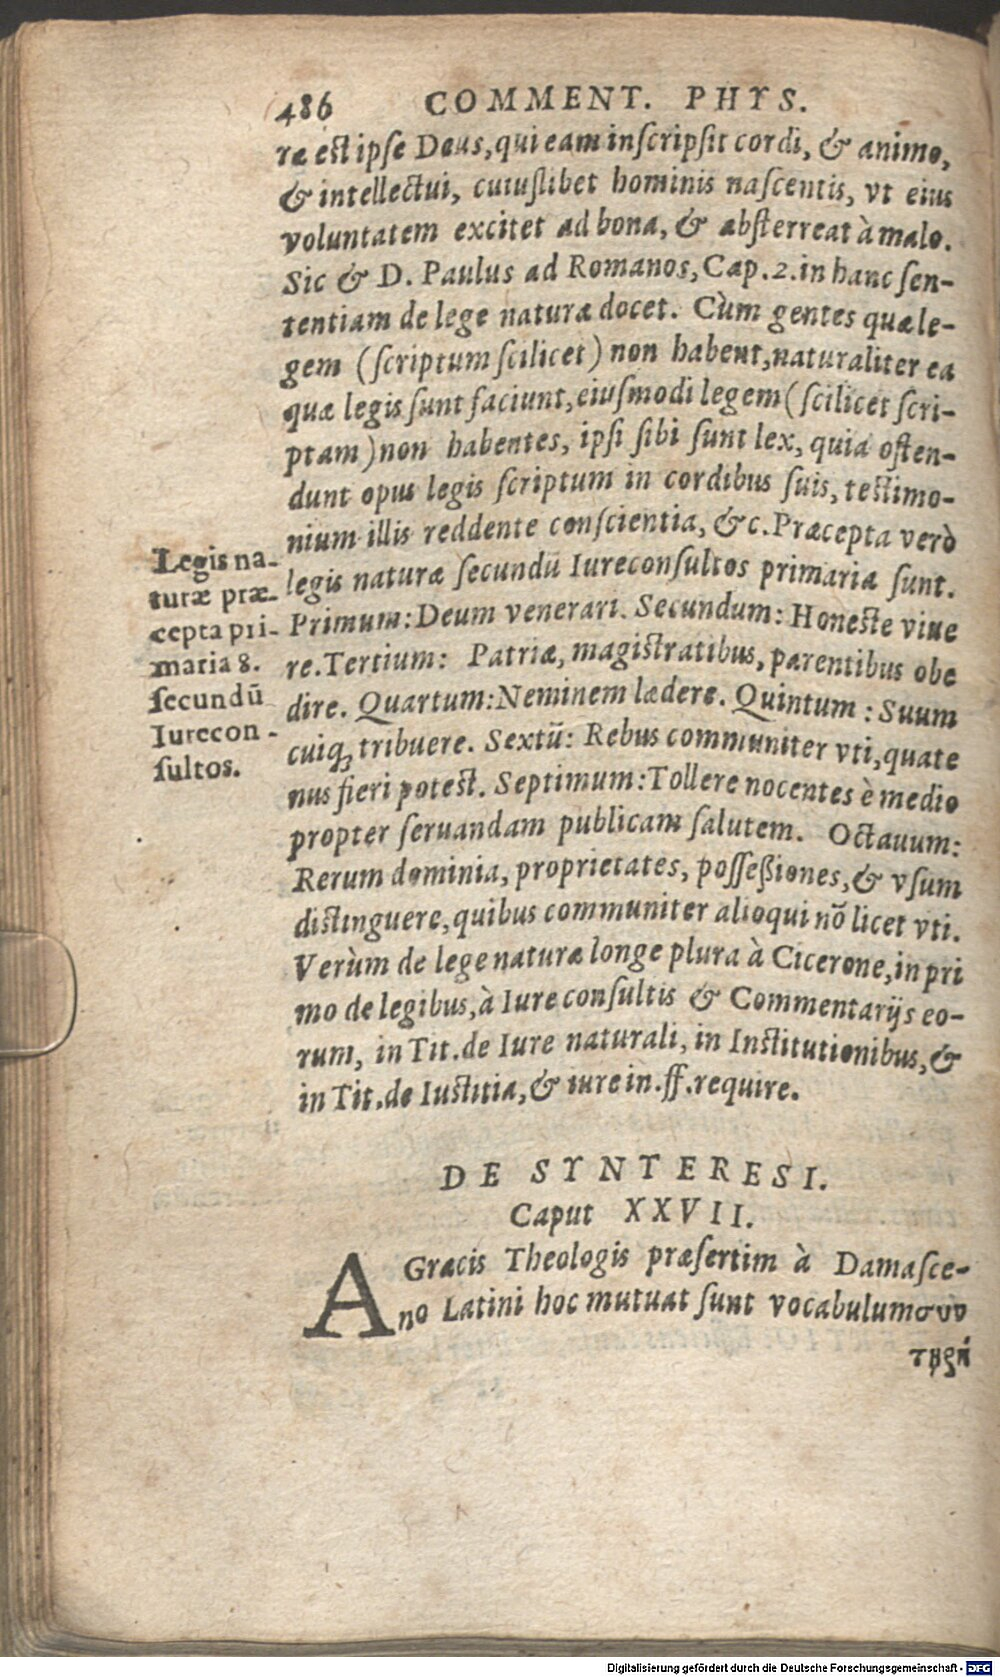 486 COMMENT. PHYS.
ræ est ipse Deus, qui eam inscripsit cordi, & animo,
& intellectui, cuiuslibet hominis nascentis, vt eius
voluntatem excitet ad bona, & absterreat à malo.
Sic & D. Paulus ad Romanos, Cap. 2. in hanc sen-
tentiam de lege naturæ docet. Cùm gentes quæ le-
gem (scriptum scilicet) non habent, naturaliter ea
quæ legis sunt faciunt, eiusmodi legem (scilicet scri-
ptam) non habentes, ipsi sibi sunt lex, quia osten-
dunt opus legis scriptum in cordibus suis, testimo-
nium illis reddente conscientia, &c. Præcepta verò
legis naturæ secundū Iureconsultos primaria sunt.
Primum: Deum venerari. Secundum: Honeste viue
re. Tertium: Patriæ, magistratibus, parentibus obe
dire. Quartum: Neminem lædere. Quintum: Suum
cuiq; tribuere. Sextū: Rebus communiter vti, quate
nus fieri potest. Septimum: Tollere nocentes è medio
propter seruandam publicam salutem. Octauum:
Rerum dominia, proprietates, possessiones, & vsum
distinguere, quibus communiter alioqui nō licet vti.
Verùm de lege naturæ longe plura à Cicerone, in pri
mo de legibus, à Iureconsultis & Commentarijs eo-
rum, in Tit. de Iure naturali, in Institutionibus, &
in Tit. de Iustitia, & iure in. ff. require.
Legis na-
turæ præ-
cepta pri-
maria 8.
secundū
Iurecon-
sultos.
DE SYNTERESI.
Caput XXVII.
A Græcis Theologis præsertim à Damasce-
no Latini hoc mutuat sunt vocabulum συν
τηρή
Digitalisierung gefördert durch die Deutsche Forschungsgemeinschaft - DFG